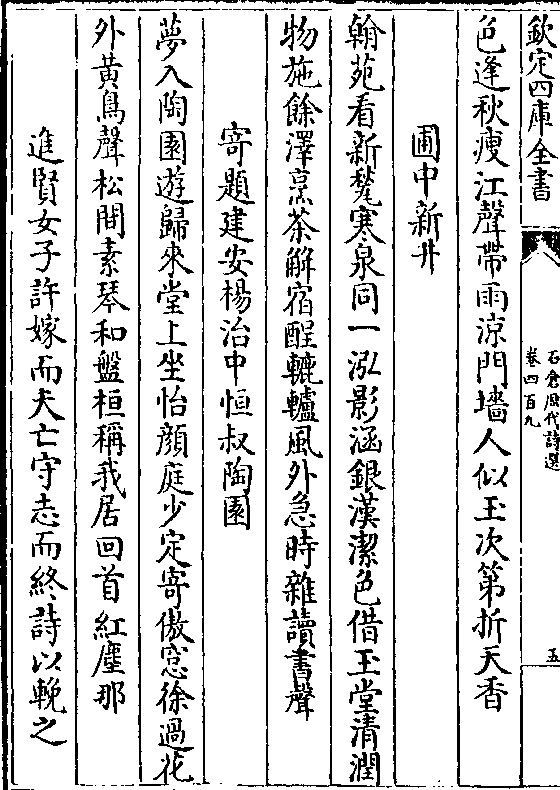 欽定四庫全書
石倉歷代詩選
卷四百九
五
色逢秋瘦江聲帶雨涼門墻人似玉次第折天香
圃中新井
翰苑看新甃寒泉同一泓影涵銀漢潔色借玉堂清潤
物施餘澤烹茶解宿酲轆轤風外急時雜讀書聲
寄題建安楊治中恒叔陶園
夢入陶園遊歸來堂上坐怡顔庭少定寄傲窓徐過花
外黄鳥聲松間素琴和盤桓稱我居回首紅塵那
進賢女子許嫁而夫亡守志而終詩以輓之